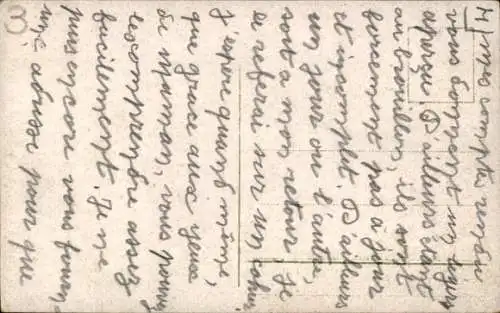 4/ mes comptes rendus
vous donnent un léger
aperçu. D'ailleurs étant
au brouillon, ils sont
forcement pas à jour
et incomplet. D'ailleurs
un jour ou l'autre,
sort a mon retour je
le referai sur un cahier
J'espère quand même,
que grâce aux yeux
de maman, vous pouvez
le comprendre assez
facilement. Je ne
puis encore vous fournir
mç adresse pour que
8